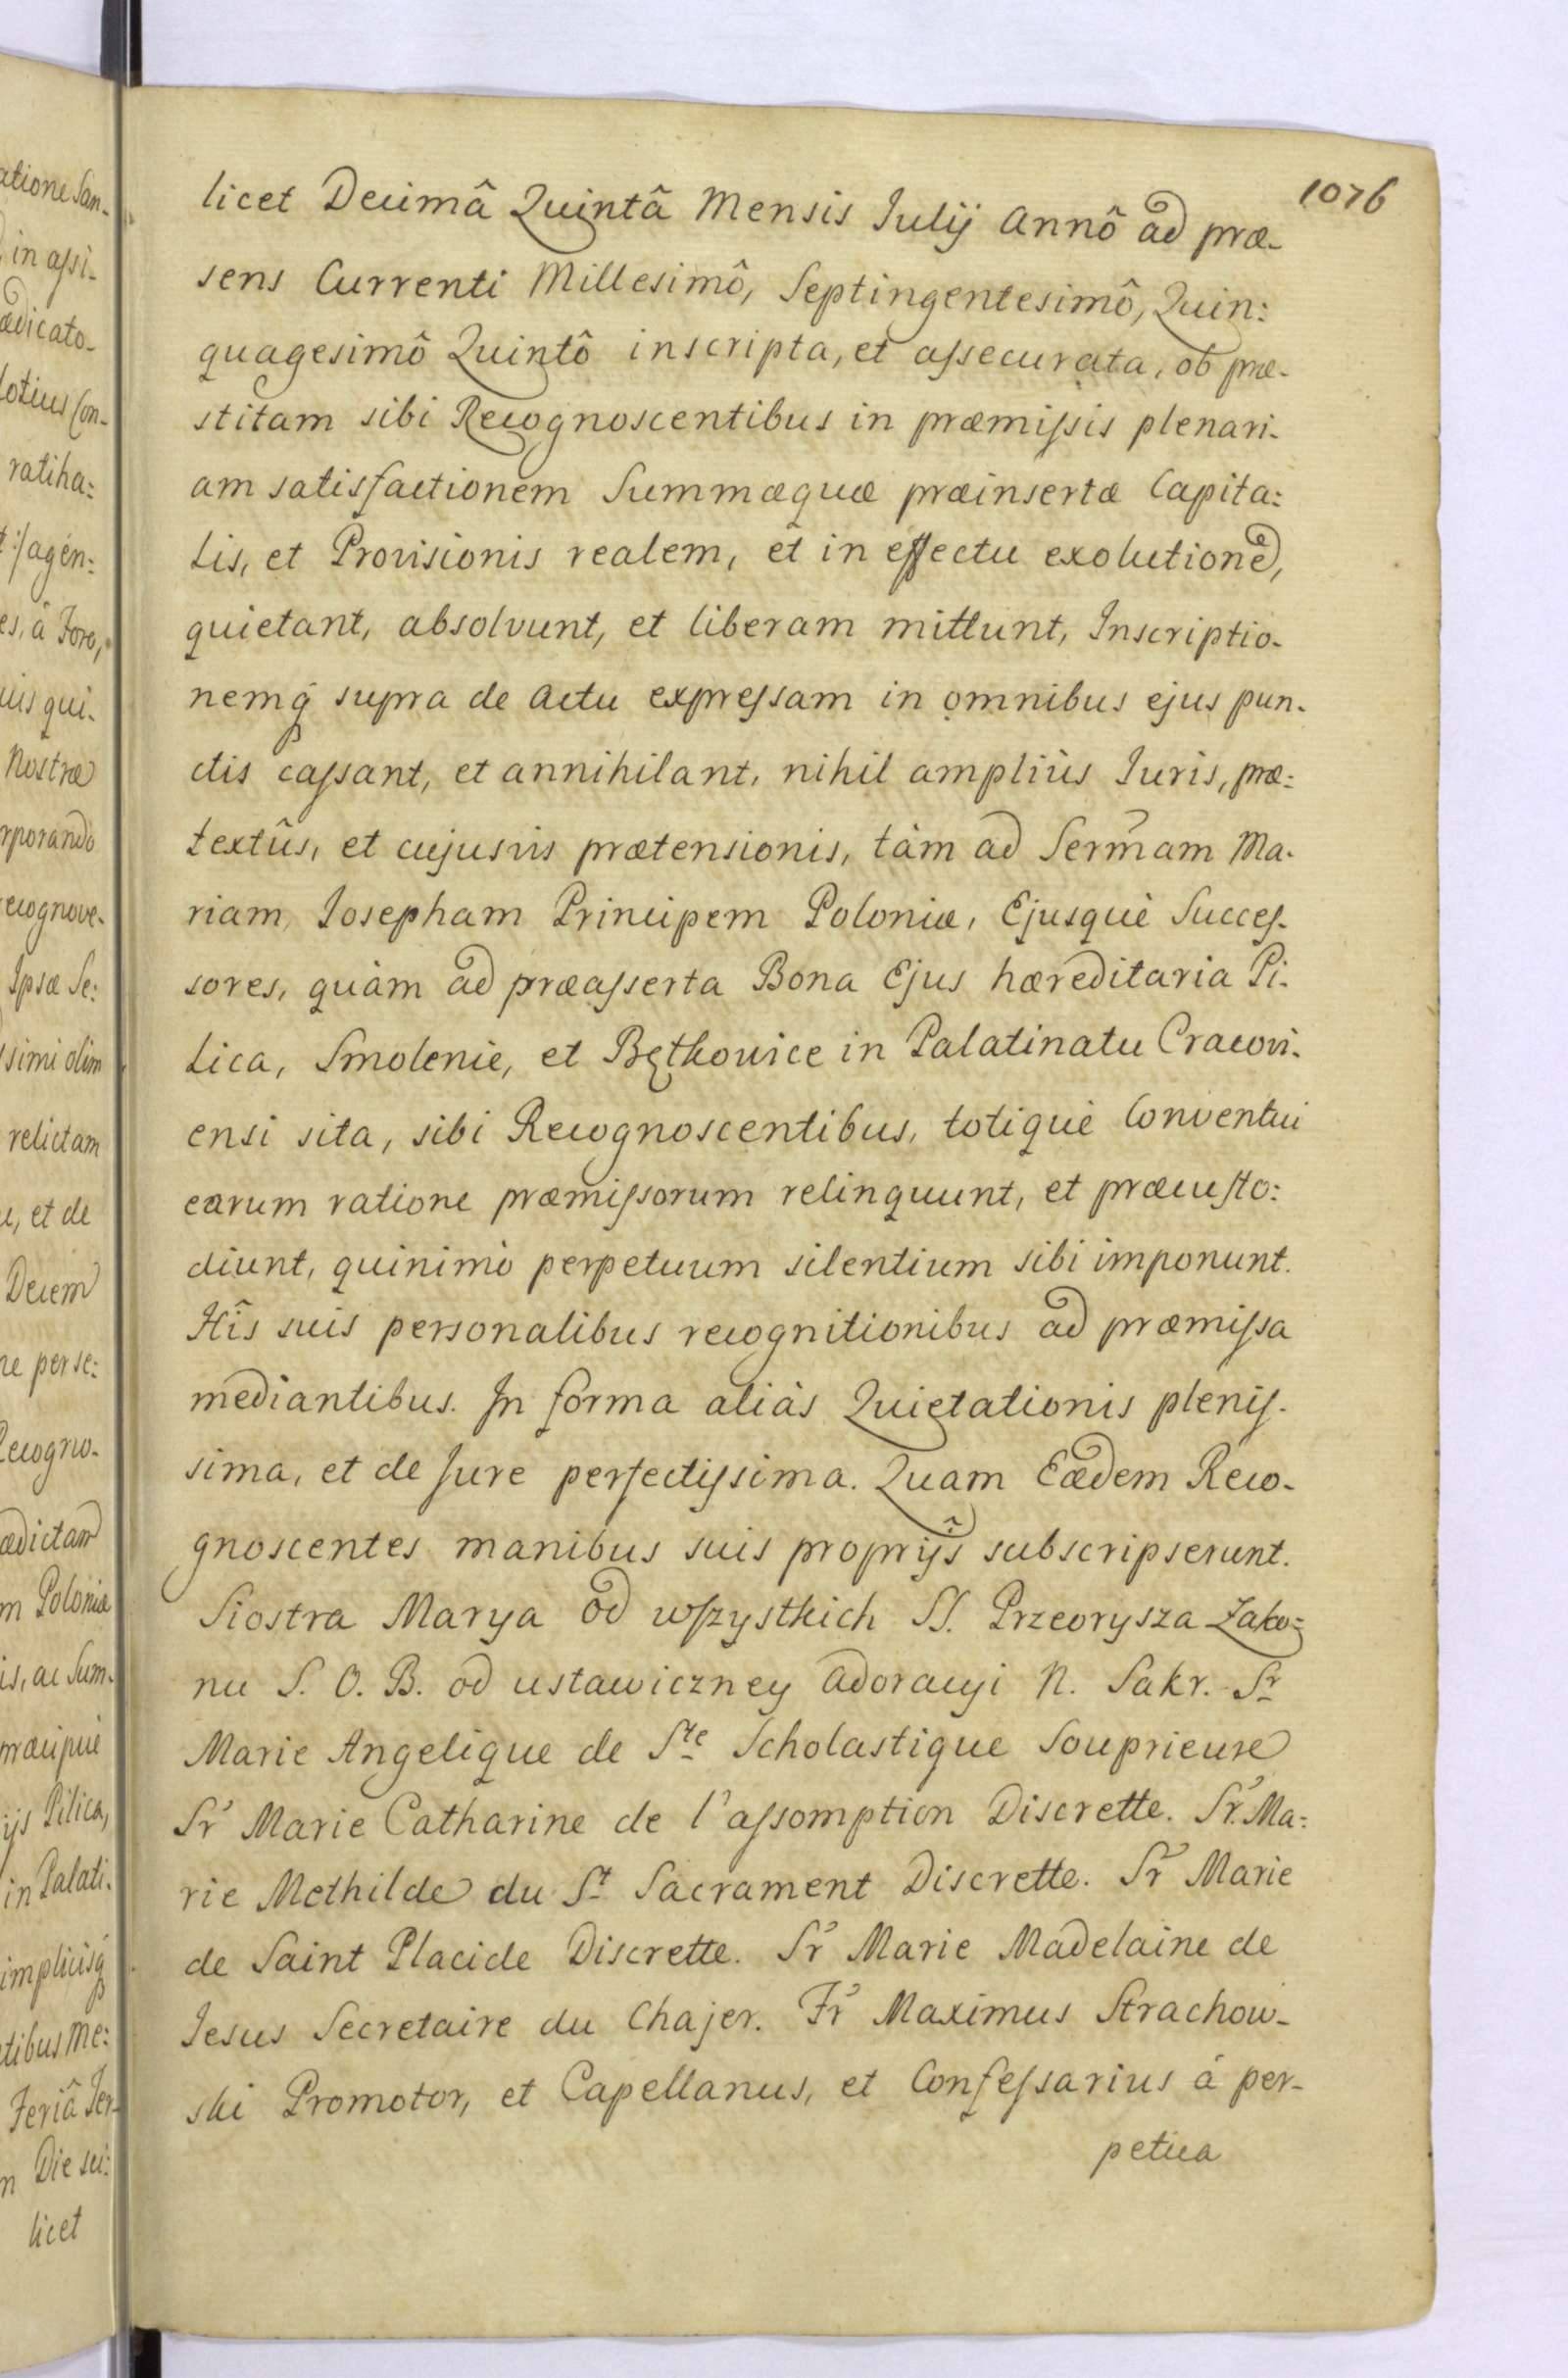 1076
licet Decimâ Quintâ Mensis Julij Annô ad præ-
sens Currenti Millesimô, Septingentesimô, Quin:
quagesimô Quintô inscripta, et assecurata, ob præ-
stitam sibi Recognoscentibus in præmissis plenari-
am satisfactionem Summæquæ præinsertæ Capita:
lis, et Provisionis realem, et in effectu exolutione,
quietant, absolvunt, et liberam mittunt, Inscriptio-
nemq́ supra de Actu expressam in omnibus ejus pun-
ctis cassant, et annihilant, nihil ampliùs Juris, præ:
textûs, et cujusvis prætensionis, tàm ad Serm̃am Ma-
riam, Josepham Principem Poloniæ, Ejusquè Succes-
sores, quàm ad præasserta Bona Ejus hæreditaria Pi-
lica, Smolenie, et Bętkowice in Palatinatu Cracovi-
ensi sita, sibi Recognoscentibus, totiquè Conventui
earum ratione præmissorum relinquunt, et præcusto:
diunt, quinimò perpetuum silentium sibi imponunt.
Hîs suis personalibus recognitionibus ad præmissa
mediantibus. In forma aliàs Quietationis plenis-
sima, et de Jure perfectissima. Quam Eædem Reco-
gnoscentes manibus suis proprijs̑ subscripserunt.
Siostra Marya od wszystkich SS. Przeorysza Zako:
nu S. O. B. od ustawiczney adoracyi N. Sakr. Sr
Marie Angelique de Ste Scholastique Souprieure
Sr Marie Catharine de l'assomption Discrette. Sr. Ma:
rie Methilde du St Sacrament Discrette. Sr Marie
de Saint Placide Discrette. Sr Marie Madelaine de
Jesus Secretaire du Chajer. Fr Maximus Strachow-
ski Promotor, et Capellanus, et Confessarius á per-
petua